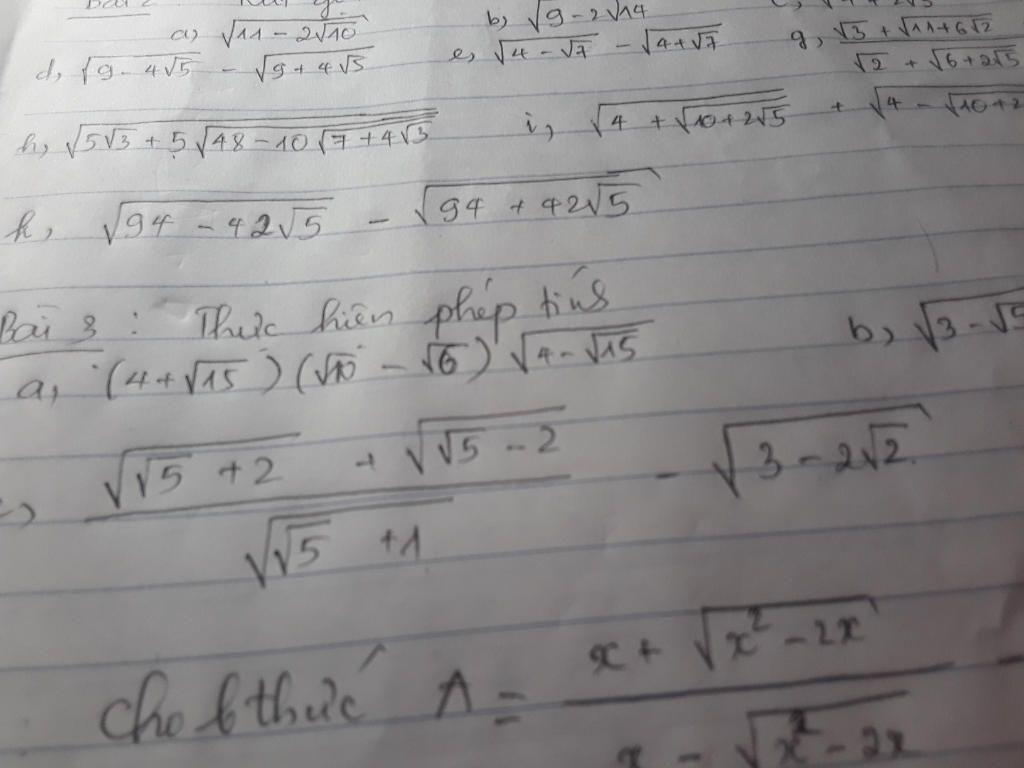 Bài 2
a, √(11 - 2√10) b, √(9 - 2√14)
d, √(9 - 4√5) - √(9 + 4√5) e, √(4 - √7) - √(4 + √7) g, (√3 + √(11 + 6√2)) / (√2 + √(6 + 2√5))
h, √(5√3 + 5√(48 - 10√(7 + 4√3))) i, √(4 + √(10 + 2√5)) + √(4 - √(10 + 2
k, √(94 - 42√5) - √(94 + 42√5)
Bài 3 : Thực hiện phép tính
a, (4 + √15)(√10 - √6) √(4 - √15) b, √(3 - √5
c, (√(√5 + 2) + √(√5 - 2)) / √(√5 + 1) - √(3 - 2√2)
Cho b thức A = (x + √(x² - 2x)) / (x - √(x² - 2x)) -